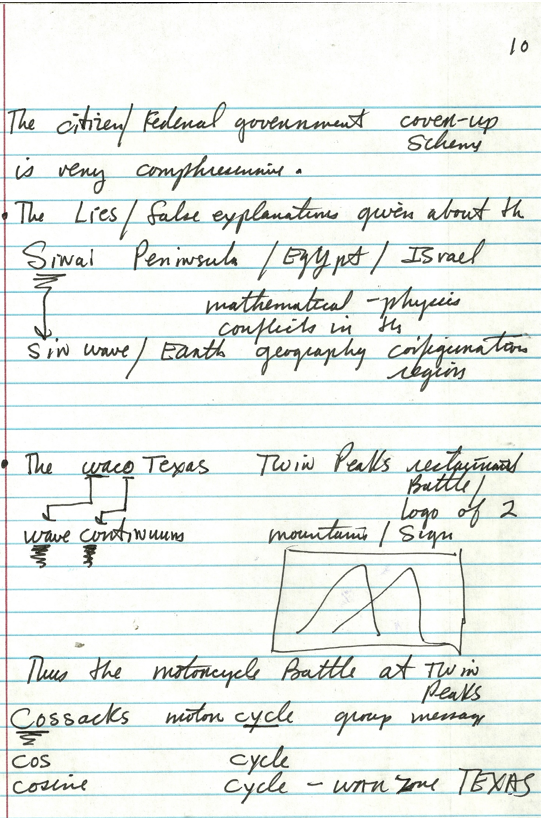 10
The citizen/ Federal government coven-up
Scheme
is very comphresensive.
• The Lies/ false explanations given about th
Sinai Peninsula / Egypt / Israel
mathematical-physics
conflicts in th
Sin wave/ Earth geography configuration
region
• The waco Texas Twin Peaks restaurant
Battle/
logo of 2
wave continuums mountains / Sign
Thus the motorcycle Battle at Twin
Peaks
Cossacks motor cycle group message
cos cycle
cosine cycle - warn zone TEXAS